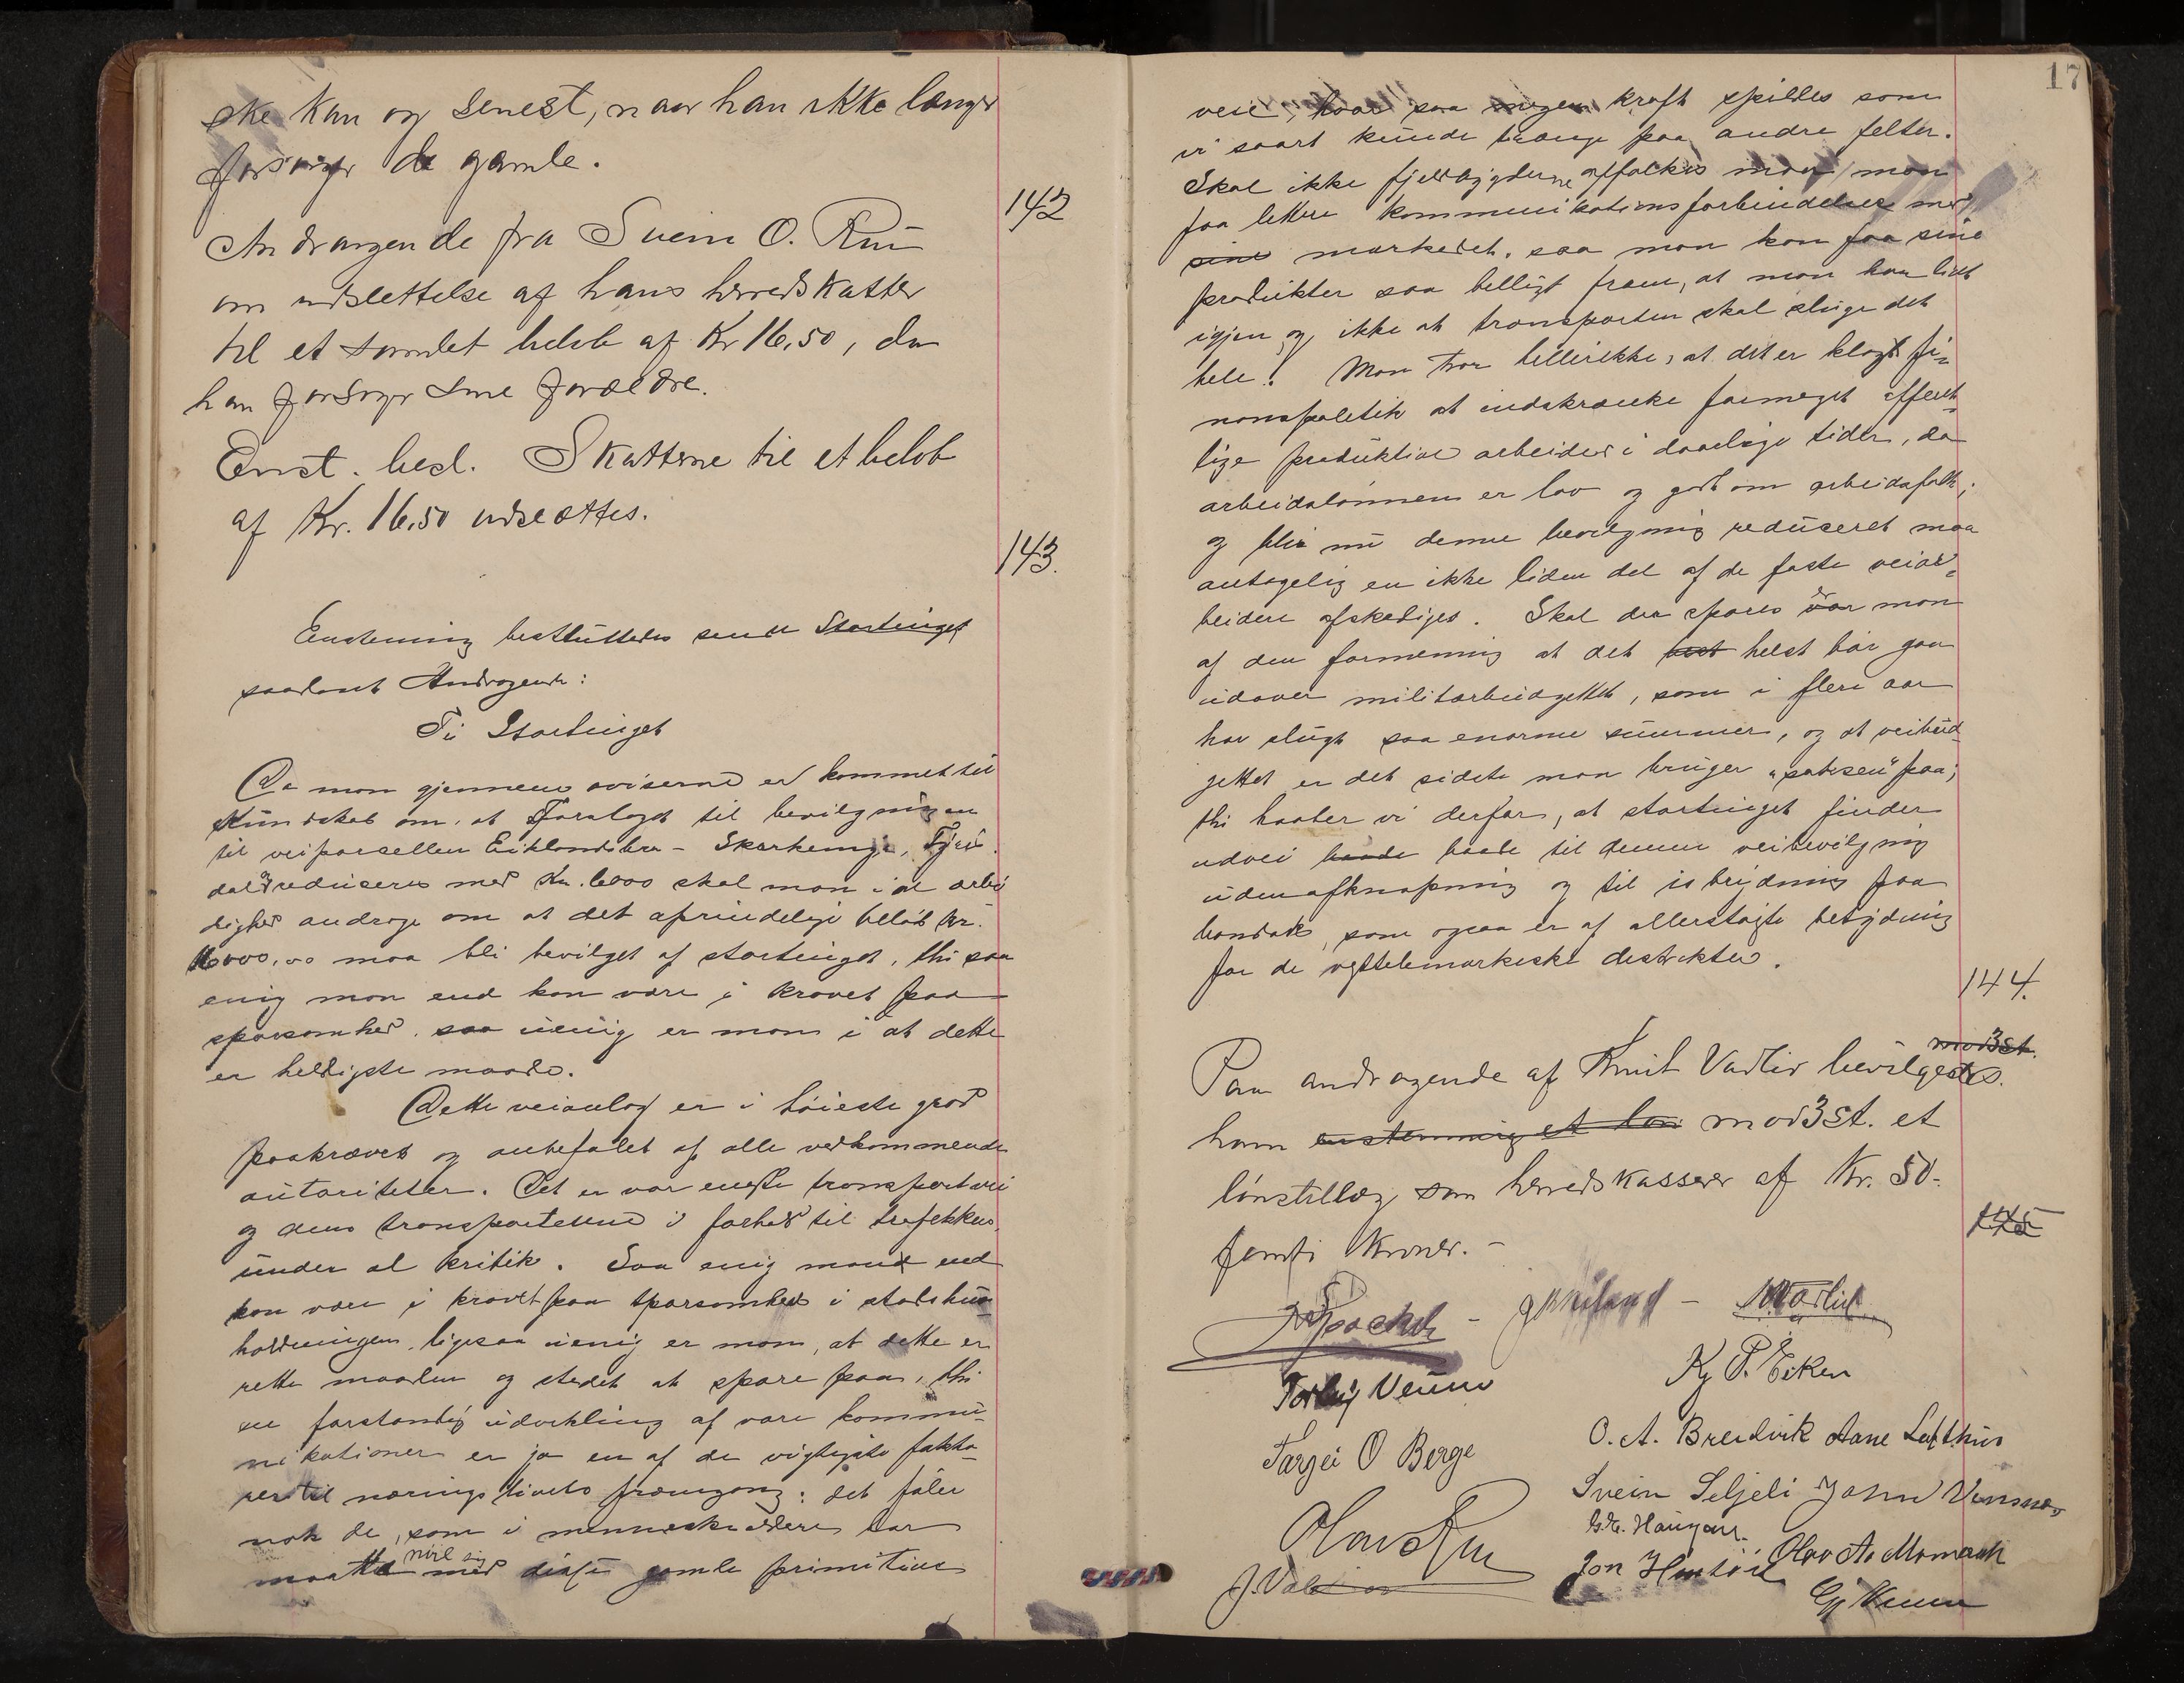 ske kan og senest, naar han ikke længer
forsørger de gamle.
142
Andragende fra Svein O. Rui
om udslettelse af hans herredskatter
til et samlet beløb af Kr 16,50, da
han forsørger sine forældre.
Enst. besl. Skatterne til et beløb
af Kr. 16,50 udslættes.
143.
Enstemmig besluttedes sende Stortinget
saadant Andragende:
Til Stortinget
Da man gjennem aviserne er kommet til
kundskab om, at Forslaget til bevilgningen
til veiparsellen Eiklandsbro -
dal reduseres med Kr. 6000 skal man i al ærbø
dighed andrage om at det oprindelige beløb Kr.
16000,00 maa bli bevilget af stortinget, thi saa
enig man end kan være i kravet paa
sparsomhed, saa uenig er man i at dette
er heldigste maade.
Dette veianlæg er i høieste grad
paakrævet og anbefalet af alle vedkommende
autoriteter. Det er vor eneste transportvei
og dens transportevne i forhold til trafikken
under al kritik. Saa enig man end
kan være i kravet paa sparsomhed i statshus
holdningen, ligesaa uenig er man, at dette er
rette maaden og stedet at spare paa, thi
en forstandig udvikling af vore kommu-
nikationer er jo en af de vigtigste fakto-
rer til næringslivets fremgang; det føler
nok de, som i menneskealdere har
maattet med disse gamle primitive
17
veie, hvor saa megen kraft spildes som
vi saart kunde trænge paa andre felter.
Skal ikke fjeldbygderne affolkes maa man
faa lettere kommunikationsforbindelse med
sine markedet, saa man kan faa sine
produkter saa billigt frem, at man har lidt
igjen og ikke at transporten skal sluge det
hele. Man tror hellerikke, at det er klogt fi-
nanspolitik at indskrænke formeget offent-
lige produktive arbeider i daarlige tider, da
arbeidslønnen er lav og godt om arbeidsfolk;
og blir nu denne bevilgning reduseret maa
antagelig en ikke liden del af de faste veiar-
beidere afskediges. Skal der spares er man
af den formening at det helst bør gaa
udover militærbudgettet, som i flere aar
har slugt saa enorme summer, og at veibud-
gettet er det sidste man bruger "saksen" paa;
thi haaber vi derfor, at stortinget finder
udvei baade til denne veibevilgning
uden afknapning og til isbrydning paa
bandak, som ogsaa er af allerstøste betydning
for de vesttelemarkeske distrikter.
144.
mod 3 st.
Paa andragende af Knut Vadlid bevilgedes
ham enstemmig et løn mod 3 St. et
lønstillæg som herredskasserer af Kr. 50-
femti Kroner. -
145
K. P. Eiken
Torleiv Venmo
Targei O Berge
O. A. Breidvik Aane Lofthus
Svein Seljeli John
Olav Rui
Jon
Olav Aa Momrak